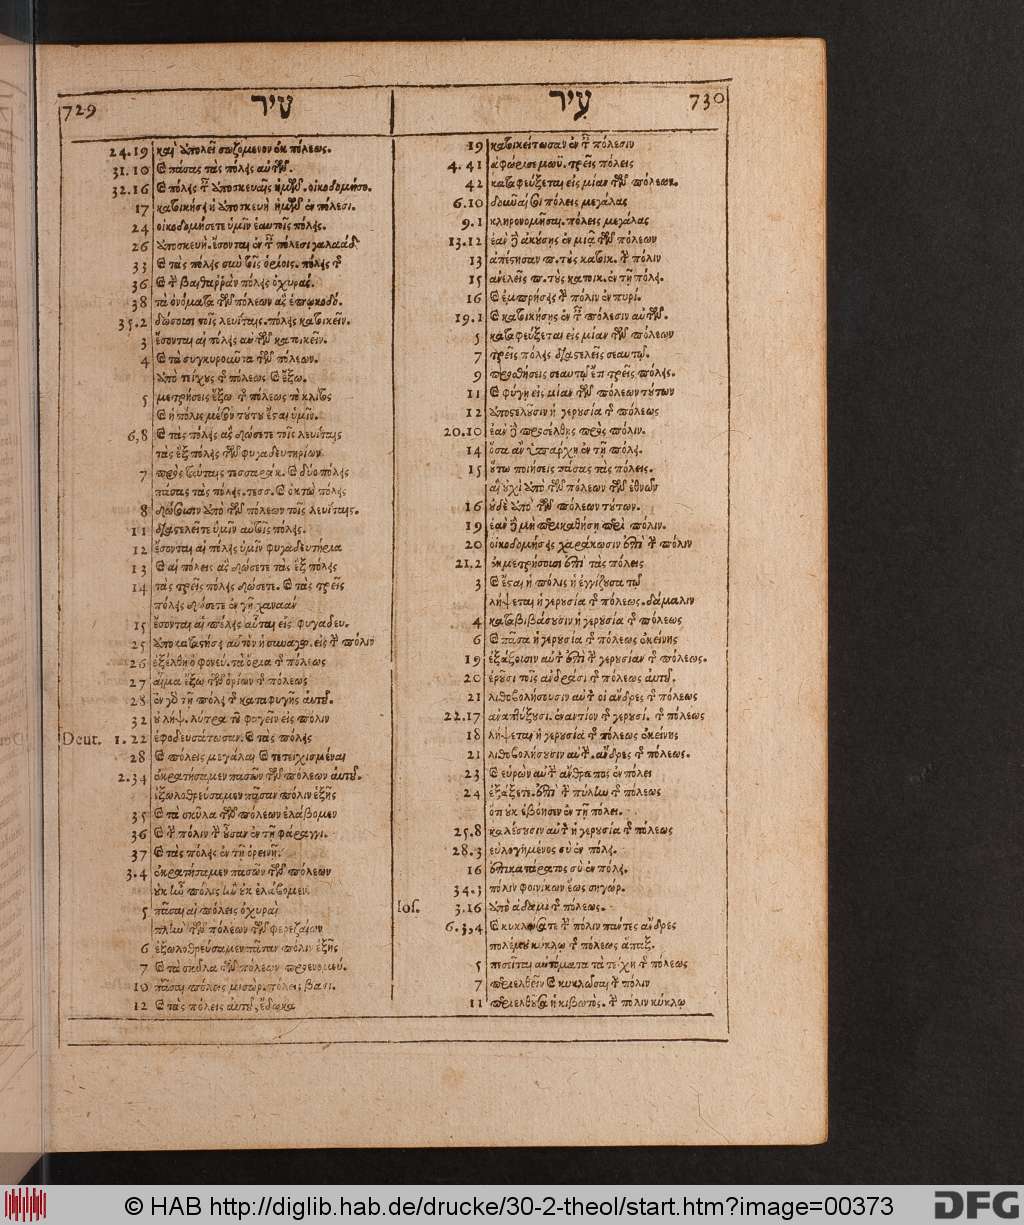 729 עיר
24.19 καὶ ἀπολεῖ σωζόμενον ἐκ πόλεως.
31.10 καὶ πάσας τὰς πόλης αὐτῶν.
32.16 καὶ πόλης τ ἀποσκευαῖς ἡμῶν. οἰκοδομήσο.
17 κατοικήση ἡ ἀποσκευὴ ἡμῶν ἐν πόλεσι.
24 οἰκοδομήσετε ὑμῖν ἑαυτοῖς πόλης.
26 ἀποσκευή. ἔσονται ἐν τ πόλεσι γαλαάδ
33 καὶ τὰς πόλης σὺν τοῖς ὁρίοις. πόλης τ
36 καὶ τ βαιθαρρὰν πόλης ὀχυράς.
38 τὰ ὀνόματα τῶν πόλεων ἃς ἐπῳκοδό.
35.2 δώσουσι τοῖς λευίταις. πόλης κατοικεῖν.
3 ἔσονται αἱ πόλης αὐτῶν κατοικεῖν.
4 καὶ τὰ συγκυροῦντα τῶν πόλεων.
ἀπὸ τείχους τ πόλεως καὶ ἔξω.
5 μετρήσεις ἔξω τ πόλεως τὸ κλίτος
καὶ ἡ πόλις μέσον τούτου ἔσται ὑμῖν.
6,8 καὶ τὰς πόλης ἃς δώσετε τοῖς λευίταις
τὰς ἓξ πόλης τῶν φυγαδευτηρίων
7 πρὸς ταύταις τεσσαράκ. καὶ δύο πόλης
πάσας τὰς πόλης. τεσσ. καὶ ὀκτὼ πόλης
8 δώσουσιν ἀπὸ τῶν πόλεων τοῖς λευίταις.
11 διαστελεῖτε ὑμῖν αὐτοῖς πόλης.
12 ἔσονται αἱ πόλης ὑμῖν φυγαδευτήρια
13 καὶ αἱ πόλεις ἃς δώσετε τὰς ἓξ πόλης
14 τὰς τρεῖς πόλης δώσετε. καὶ τὰς τρεῖς
πόλης δώσετε ἐν γῇ χαναάν
15 ἔσονται αἱ πόλης αὗται εἰς φυγαδευ.
25 ἀποκαταστήση αὐτὸν ἡ συναγω. εἰς τ πόλιν
26 ἐξέλθῃ ὁ φονεύ. τὰ ὅρια τ πόλεως
27 αἷμα ἔξω τῶν ὁρίων τ πόλεως
28 ἐν γὰρ τῇ πόλη τ καταφυγῆς αὐτοῦ.
32 οὐ λήψ. λύτρα τοῦ φυγεῖν εἰς πόλιν
Deut. 1.22 ἐφοδευσάτωσαν. καὶ τὰς πόλης
28 καὶ πόλεις μεγάλαι καὶ τετειχισμέναι
2.34 ἐκρατήσαμεν πασῶν τῶν πόλεων αὐτοῦ.
ἐξωλοθρεύσαμεν πᾶσαν πόλιν ἑξῆς
35 καὶ τὰ σκῦλα τῶν πόλεων ἐλάβομεν
36 καὶ τ πόλιν τ οὖσαν ἐν τῇ φάραγγι.
37 καὶ τὰς πόλης ἐν τῇ ὀρεινῇ.
3.4 ἐκρατήσαμεν πασῶν τῶν πόλεων
οὐκ ἦν πόλις ἣν οὐκ ἐλάβομεν
5 πᾶσαι αἱ πόλεις ὀχυραὶ
πλὴν τῶν πόλεων τῶν φερεζαίων
6 ἐξωλοθρεύσαμεν πᾶσαν πόλιν ἑξῆς
7 καὶ τὰ σκῦλα τῶν πόλεων προενομεύ.
10 πᾶσαι πόλεις μισώρ. πόλεις βασι.
12 καὶ τὰς πόλεις αὐτοῦ, ἔδωκα
עיר 730
19 κατοικείτωσαν ἐν τ πόλεσιν
4.41 ἀφώρισε μωϋ. τρεῖς πόλεις
42 καταφεύξεται εἰς μίαν τῶν πόλεων.
6.10 δοῦναί σοι πόλεις μεγάλας
9.1 κληρονομῆσαι. πόλεις μεγάλας
13.12 ἐὰν δὲ ἀκούσης ἐν μιᾷ τῶν πόλεων
13 ἀπέστησαν π. τοὺς κατοικ. τ πόλιν
15 ἀνελεῖς π. τοὺς κατοικ. ἐν τῇ πόλη.
16 καὶ ἐμπρήσης τ πόλιν ἐν πυρί.
19.1 καὶ κατοικήσης ἐν τ πόλεσιν αὐτῶν.
5 καταφεύξεται εἰς μίαν τῶν πόλεων
7 τρεῖς πόλης διαστελεῖς σεαυτῷ.
9 προσθήσεις σεαυτῷ ἔτι τρεῖς πόλης.
11 καὶ φύγη εἰς μίαν τῶν πόλεων τούτων
12 ἀποστελοῦσιν ἡ γερουσία τ πόλεως
20.10 ἐὰν δὲ προσέλθης πρὸς πόλιν.
14 ὅσα ἂν ὑπάρχη ἐν τῇ πόλη.
15 οὕτω ποιήσεις πάσας τὰς πόλεις.
αἳ οὐχὶ ἀπὸ τῶν πόλεων τῶν ἐθνῶν
16 οὐδὲ ἀπὸ τῶν πόλεων τούτων.
19 ἐὰν δὲ μὴ περικαθήση περὶ πόλιν.
20 οἰκοδομήσης χαράκωσιν ἐπὶ τ πόλιν
21.2 ἐκμετρήσουσι ἐπὶ τὰς πόλεις
3 καὶ ἔσται ἡ πόλις ἡ ἐγγίζουσα τῷ
λήψεται ἡ γερουσία τ πόλεως. δάμαλιν
4 καταβιβάσουσιν ἡ γερουσία τ πόλεως
6 καὶ πᾶσα ἡ γερουσία τ πόλεως ἐκείνης
19 ἐξάξουσιν αὐτ ἐπὶ τ γερουσίαν τ πόλεως.
20 ἐροῦσι τοῖς ἀνδράσι τ πόλεως αὐτοῦ.
21 λιθοβολήσουσιν αὐτ οἱ ἄνδρες τ πόλεως
22.17 ἀναπτύξουσι. ἐναντίον τ γερουσί. τ πόλεως
18 λήψεται ἡ γερουσία τ πόλεως ἐκείνης
21 λιθοβολήσουσιν αὐτ. ἄνδρες τ πόλεως.
23 καὶ εὑρὼν αὐτ ἄνθρωπος ἐν πόλει
24 ἐξάξετε. ἐπὶ τ πύλην τ πόλεως
ὅτι οὐκ ἐβόησεν ἐν τῇ πόλει.
25.8 καλέσουσιν αὐτ ἡ γερουσία τ πόλεως
28.3 εὐλογημένος σὺ ἐν πόλη.
16 ἐπικατάρατος σὺ ἐν πόλη.
34.3 πόλιν φοινίκων ἕως σηγώρ.
Ios. 3.16 ἀπὸ ἀδαμὶ τ πόλεως.
6.3,4 καὶ κυκλώσατε τ πόλιν πάντες ἄνδρες
πολέμου κύκλῳ τ πόλεως ἅπαξ.
5 πεσεῖται αὐτόματα τὰ τείχη τ πόλεως
7 περιελθεῖν καὶ κυκλῶσαι τ πόλιν
11 περιελθοῦσα ἡ κιβωτὸς. τ πόλιν κύκλῳ
© HAB http://diglib.hab.de/drucke/30-2-theol/start.htm?image=00373
DFG